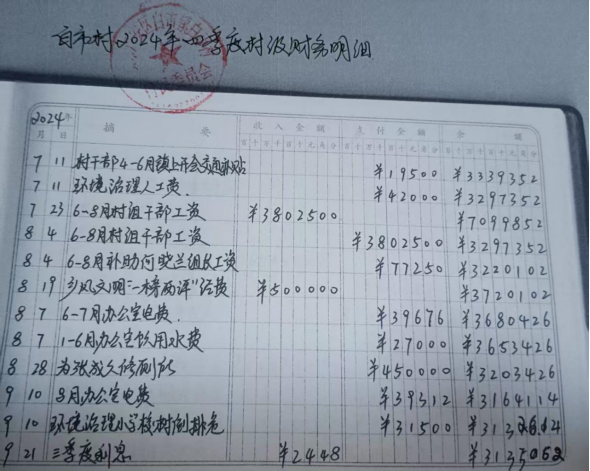 白市村2024年四季度村级财务明细
2024年
月 日 摘 要 收入金额 支付金额 余 额
7 11 村干部4-6月镇上开会交通补贴 ¥19500 ¥3339352
7 11 环境治理人工费. ¥42000 ¥3297352
7 23 6-8月村组干部工资 ¥3802500 ¥7099852
8 4 6-8月村组干部工资 ¥3802500 ¥3297352
8 4 6-8月补助何晓兰组长工资 ¥77250 ¥3220102
8 19 乡风文明"一榜两评"经费 ¥500000 ¥3720102
8 7 6-7月办公室电费. ¥39676 ¥3680426
8 7 1-6月办公室饮用水费 ¥27000 ¥3653426
8 28 为张成久修厕所 ¥450000 ¥3203426
9 10 8月办公室电费 ¥39312 ¥3164114
9 10 环境治理小学校树倒排危 ¥31500 ¥3132614
9 21 三季度利息 ¥2448 ¥3135062